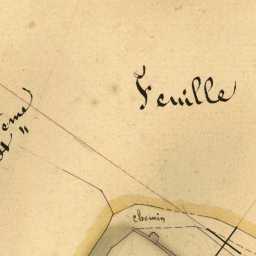 Feuille
ème
chemin